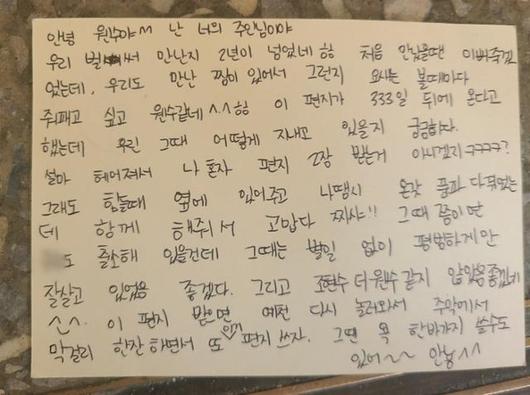 안녕 원수야^^ 난 너의 주인님이야
우리 벌써 만난지 2년이 넘었네 ㅎㅎ 처음 만났을땐 이뻐죽겠
었는데, 우리도 만난 짬이 있어서 그런지 요새는 볼때마다
줘패고 싶고 원수같네^^ㅎㅎ 이 편지가 333일 뒤에 온다고
했는데 우린 그때 어떻게 지내고 있을지 궁금하다.
설마 헤어져서 나 혼자 편지 2장 받는거 아니겠지ㅋㅋㅋㅋ?
그래도 힘들때 옆에 있어주고 나땜시 온갖 풍파 다 겪었는
데 함께 해줘서 고맙다 짜샤!! 그때 쯤이면
도 출소해 있을건데 그때는 별일 없이 평범하게만
잘살고 있었음 좋겠다. 그리고 조현수 더 원수 같지 않았음 좋겠네
^^. 이 편지 받으면 예전 다시 놀러와서 주막에서
막걸리 한잔 하면서 또 편지 쓰자. 그땐 욕 한바가지 쓸수도
있어~~ 안뇽^^